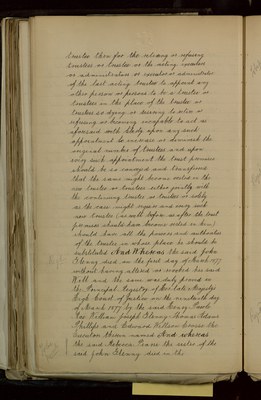 trustee then for the retiring or refusing
trustees or trustee or the acting executors
or administrators or executor or administrator
of the last acting trustee to appoint any
other person or persons to be a trustee or
trustees in the place of the trustee or
trustees so dying or desiring to retire or
refusing or becoming incapable to act as
aforesaid with liberty upon any such
appointment to increase or diminish the
original number of trustees and upon
every such appointment the trust premises
should be so conveyed and transferred
that the same might become vested in the
new trustee or trustees either jointly with
the continuing trustee or trustees or solely
as the case might require and every such
new trustee (as well before as after the trust
premises should have become vested in him)
should have all the powers and authorities
of the trustee in whose place he should be
substituted And Whereas the said John
died on the first day of March 1877
without having altered or revoked his said
Will and the same was duly proved in
the Principal Registry of Her late Majesty's
High Court of Justice on the nineteenth day
of March 1877 by the said Henry
William Joseph Thomas Adams
Phillips and Edward William the
Executors therein named And whereas
the said Rebecca the sister of the
said John died on the